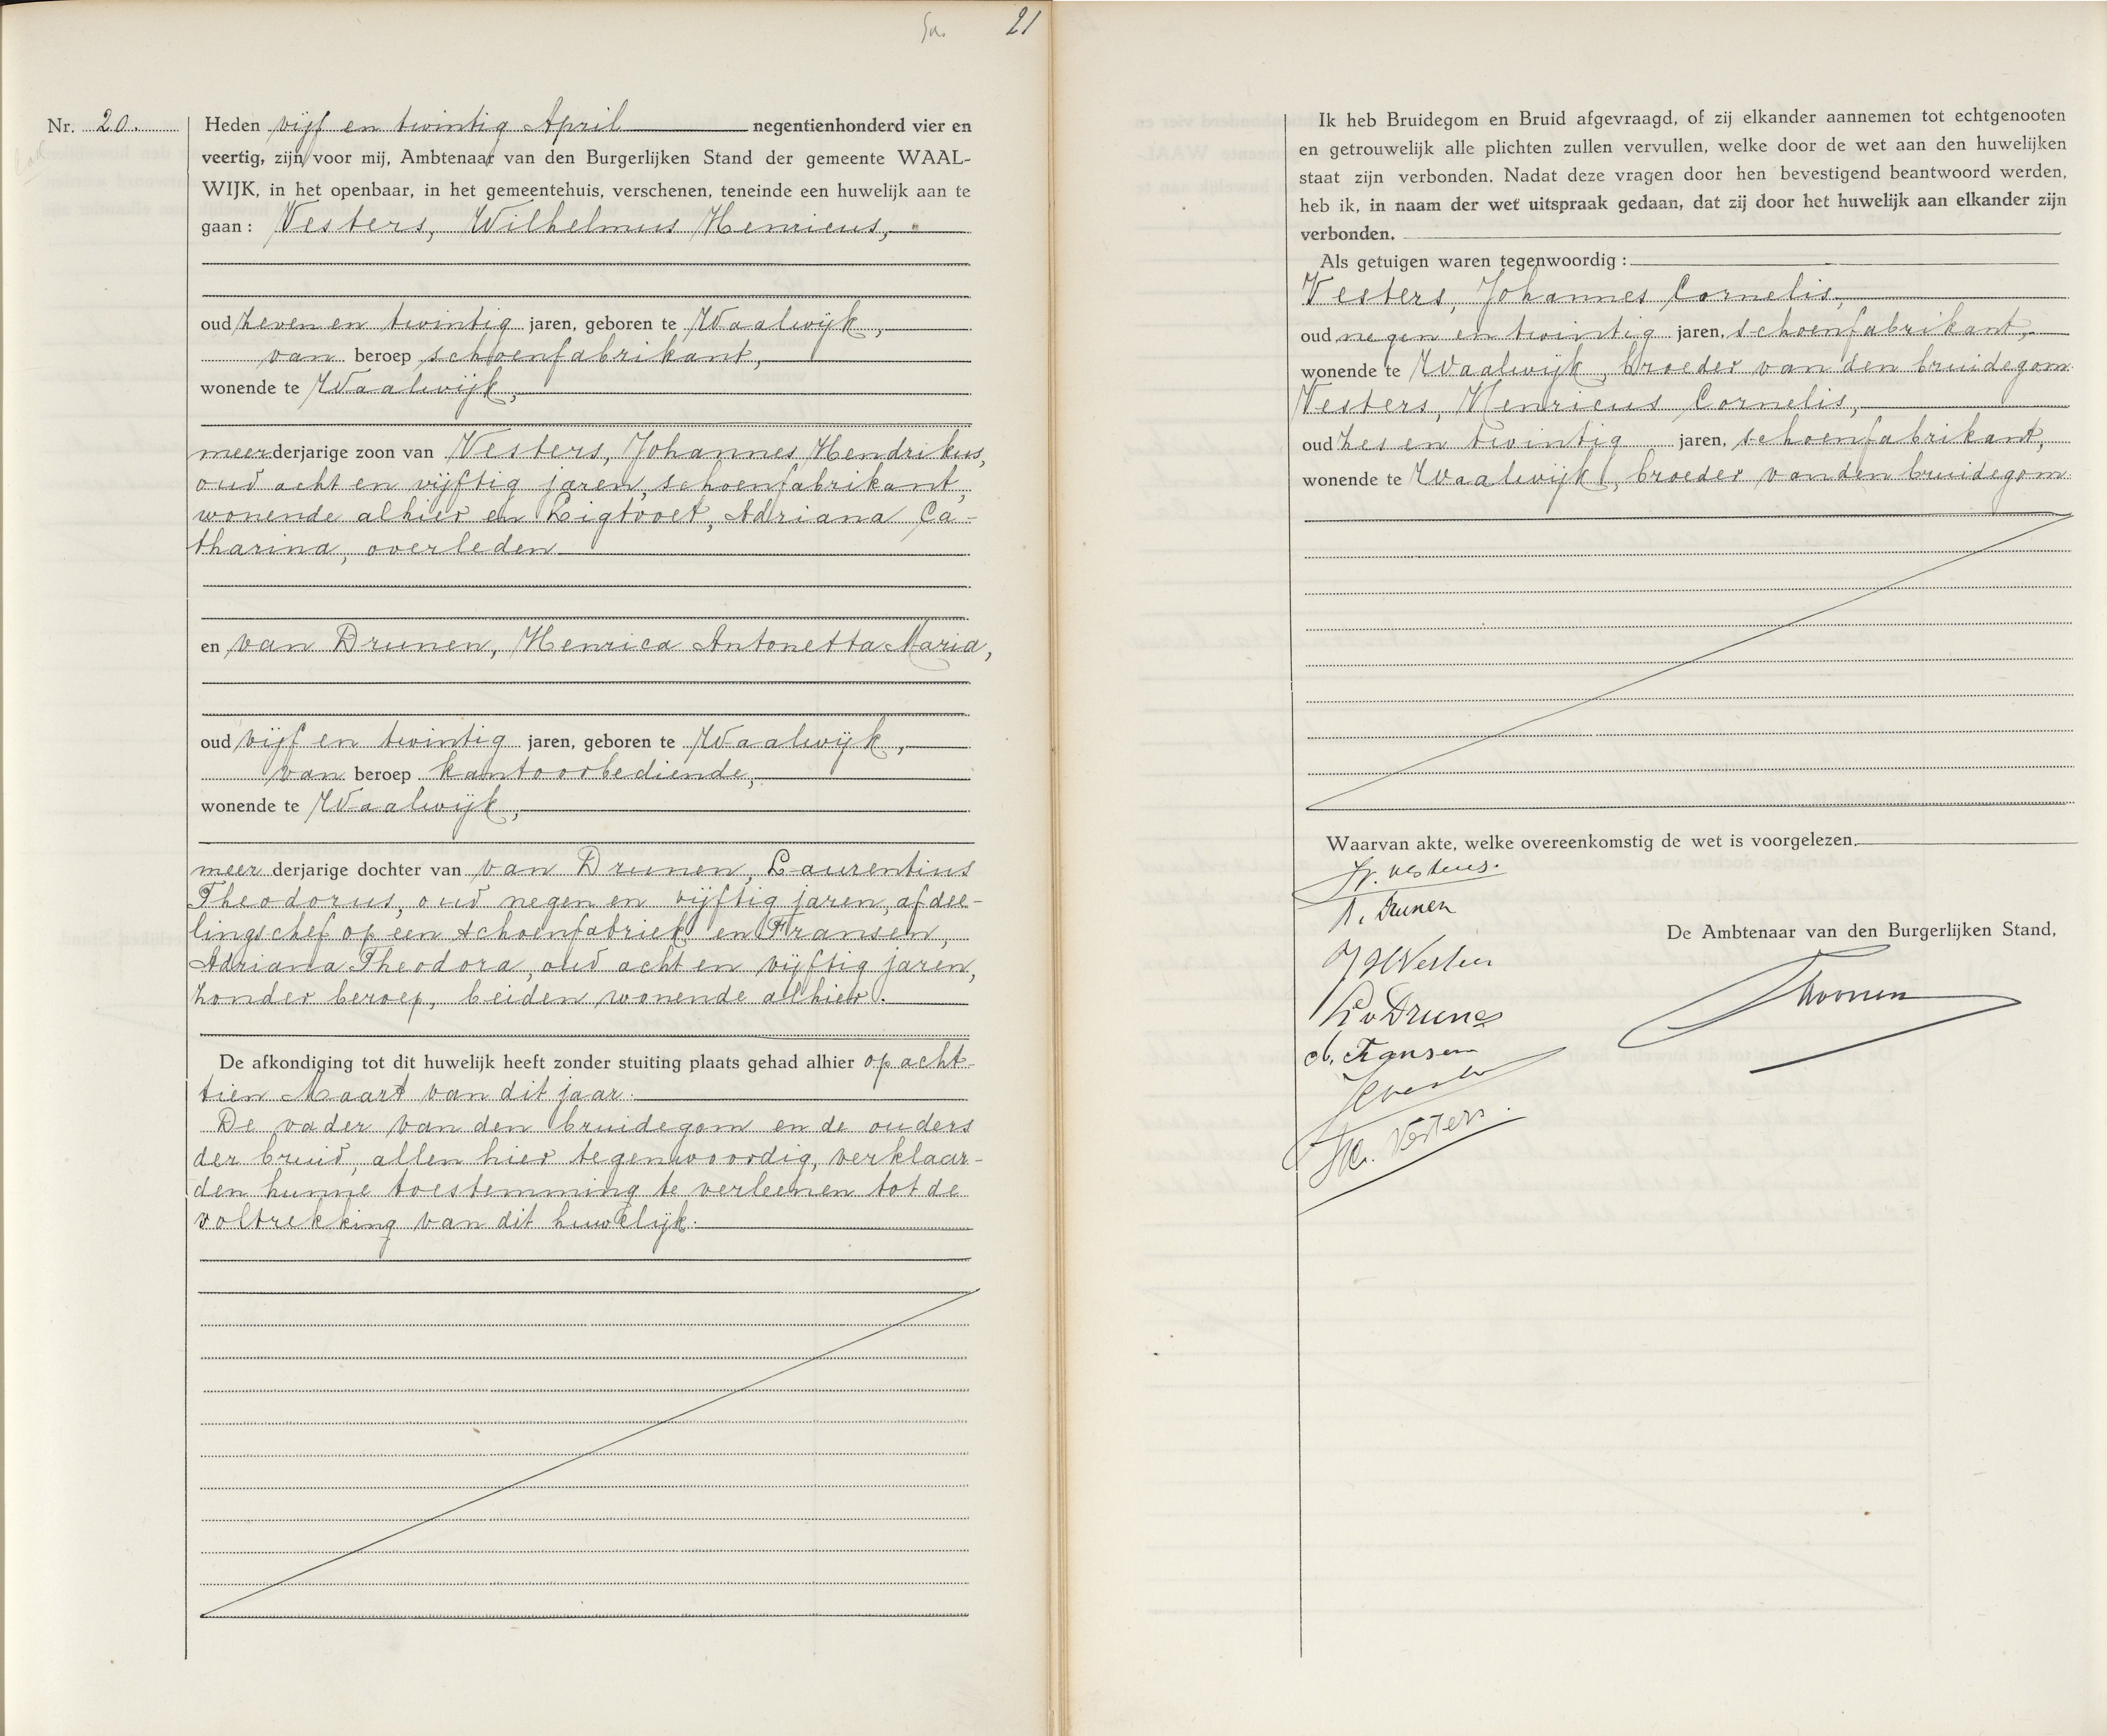 21
Nr. 20.
Heden vijf en twintig April negentienhonderd vier en
veertig, zijn voor mij, Ambtenaar van den Burgerlijken Stand der gemeente WAAL-
WIJK, in het openbaar, in het gemeentehuis, verschenen, teneinde een huwelijk aan te
gaan: Vesters, Wilhelmus Henricus,
oud zeven en twintig jaren, geboren te Waalwijk,
van beroep schoenfabrikant,
wonende te Waalwijk,
meerderjarige zoon van Vesters, Johannes Hendrikus,
oud acht en vijftig jaren, schoenfabrikant,
wonende alhier en Ligtvoet, Adriana Ca-
tharina, overleden
en van Drunen, Henrica Antonetta Maria,
oud vijf en twintig jaren, geboren te Waalwijk,
van beroep kantoorbediende,
wonende te Waalwijk,
meerderjarige dochter van van Drunen, Laurentius
Theodorus, oud negen en vijftig jaren, afdee-
lingschef op een schoenfabriek en Fransen,
Adriana Theodora, oud acht en vijftig jaren,
zonder beroep, beiden wonende alhier.
De afkondiging tot dit huwelijk heeft zonder stuiting plaats gehad alhier op acht-
tien Maart van dit jaar.
De vader van den bruidegom en de ouders
der bruid, allen hier tegenwoordig, verklaar-
den hunne toestemming te verleenen tot de
voltrekking van dit huwelijk.
Ik heb Bruidegom en Bruid afgevraagd, of zij elkander aannemen tot echtgenooten
en getrouwelijk alle plichten zullen vervullen, welke door de wet aan den huwelijken
staat zijn verbonden. Nadat deze vragen door hen bevestigend beantwoord werden,
heb ik, in naam der wet uitspraak gedaan, dat zij door het huwelijk aan elkander zijn
verbonden.
Als getuigen waren tegenwoordig:
Vesters, Johannes Cornelis,
oud negen en twintig jaren, schoenfabrikant,
wonende te Waalwijk, broeder van den bruidegom
Vesters, Henricus Cornelis,
oud zes en twintig jaren, schoenfabrikant,
wonende te Waalwijk, broeder van den bruidegom
Waarvan akte, welke overeenkomstig de wet is voorgelezen.
W. Vesters.
v. Drunen
De Ambtenaar van den Burgerlijken Stand,
J H Vesters
L v Drunen
A. Fransen
H.C. Vesters.